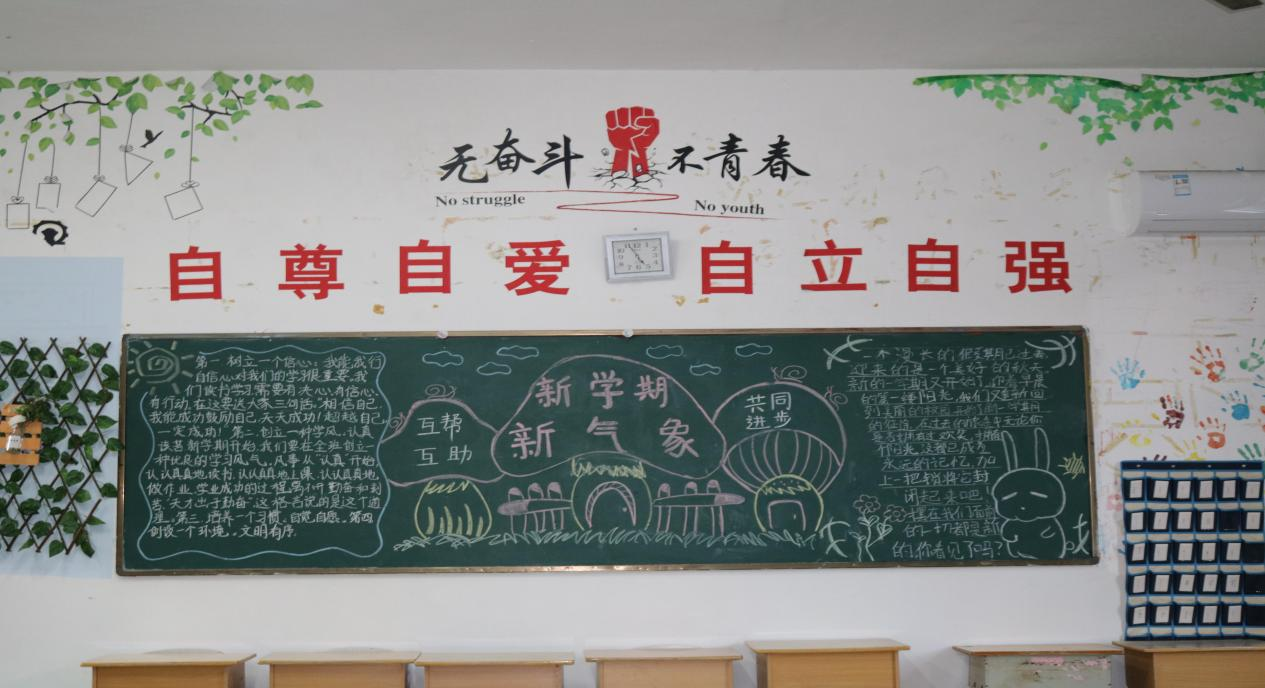 无奋斗 不青春
No struggle No youth
自尊自爱 自立自强
第一 树立一个信心:我能,我行
自信心对我们的学习很重要,我
们做书学习需要有决心,有信心,
有行动,在这里送大家三句话:相信自己
我能成功!鼓励自己,天天成功!超越自己,
一定成功!第二 创立一种学风:认真
该某新学期开始,我们要在全班创立一
种优良的学习风气,凡事从"认真"开始,
认认真真地读书,认认真真地上课,认认真真地
做作业,学业成功的过程,离不开勤奋和刻
苦,天才出于勤奋,这格名说的是这个道
理。第三,培养一个习惯:自觉,自感。第四
创设一个环境。文明有序.
互帮
互助
新学期
新气象
共同
进步
一个漫长的假期已过去
迎来的是一个美好的秋天
新的一学期又开始了,迎着早晨
的第一缕阳光,我们又重新回
永远的记忆,加
上一把锁将它封
闭起来吧
摆在我们面前
的一切都是新
的,你看见了吗?